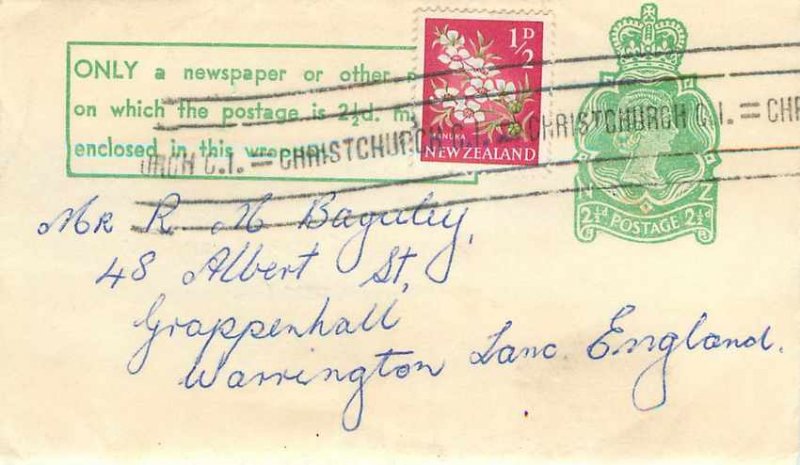 ONLY a newspaper or other p
on which the postage is 2½d. m
enclosed in this wrapper
½D
MANUKA
NEW ZEALAND
URCH C.1. = CHRISTCHURCH C.1. = CHRISTCHURCH C.1. = CHR
Z
2½d POSTAGE 2½d
Mr R. M Baguley,
48 Albert St,
Grappenhall
Warrington Lanc. England.